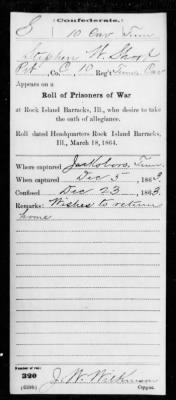 (Confederate.)
S 10 Cav Tenn
Stephen W. Short
Pvt, Co. C, 10 Reg't Tenn. Cav
Appears on a
Roll of Prisoners of War
at Rock Island Barracks, Ill., who desire to take
the oath of allegiance.
Roll dated Headquarters Rock Island Barracks,
Ill., March 18, 1864.
Where captured Jacksboro, Tenn.
When captured Dec 5, 1863
Confined Dec 23, 1863.
Remarks: Wishes to return
home
Number of roll:
320
J. W. Wilkinson
Copyist.